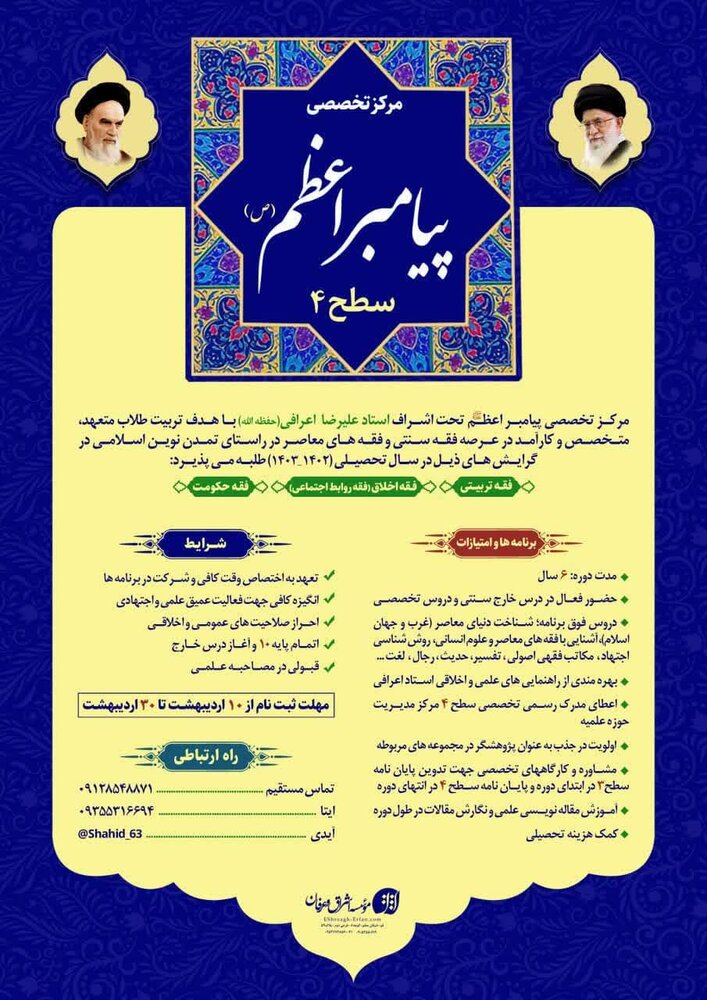 مرکز تخصصی
پیامبر اعظم (ص)
سطح ۴
مرکز تخصصی پیامبر اعظم ﷺ تحت اشراف استاد علیرضا اعرافی (حفظه الله) با هدف تربیت طلاب متعهد،
متخصص و کارآمد در عرصه فقه سنتی و فقه های معاصر در راستای تمدن نوین اسلامی در
گرایش های ذیل در سال تحصیلی (۱۴۰۲_۱۴۰۳) طلبه می پذیرد:
فقه تربیتی
فقه اخلاق (فقه روابط اجتماعی)
فقه حکومت
برنامه ها و امتیازات
مدت دوره: ۶ سال
حضور فعال در درس خارج سنتی و دروس تخصصی
دروس فوق برنامه؛ شناخت دنیای معاصر (غرب و جهان
اسلام)، آشنایی با فقه های معاصر و علوم انسانی، روش شناسی
اجتهاد، مکاتب فقهی اصولی، تفسیر، حدیث، رجال، لغت ...
بهره مندی از راهنمایی های علمی و اخلاقی استاد اعرافی
اعطای مدرک رسمی تخصصی سطح ۴ مرکز مدیریت
حوزه علمیه
اولویت در جذب به عنوان پژوهشگر در مجموعه های مربوطه
مشاوره و کارگاههای تخصصی جهت تدوین پایان نامه
سطح ۳ در ابتدای دوره و پایان نامه سطح ۴ در انتهای دوره
آموزش مقاله نویسی علمی و نگارش مقالات در طول دوره
کمک هزینه تحصیلی
شرایط
تعهد به اختصاص وقت کافی و شرکت در برنامه ها
انگیزه کافی جهت فعالیت عمیق علمی و اجتهادی
احراز صلاحیت های عمومی و اخلاقی
اتمام پایه ۱۰ و آغاز درس خارج
قبولی در مصاحبه علمی
مهلت ثبت نام از ۱۰ اردیبهشت تا ۳۰ اردیبهشت
راه ارتباطی
تماس مستقیم ........ ۰۹۱۲۸۵۴۸۸۷۱
ایتا ........ ۰۹۳۵۵۳۱۶۶۹۴
آیدی ........ @Shahid_63
مؤسسه اشراق و عرفان
Eshragh-Erfan.com